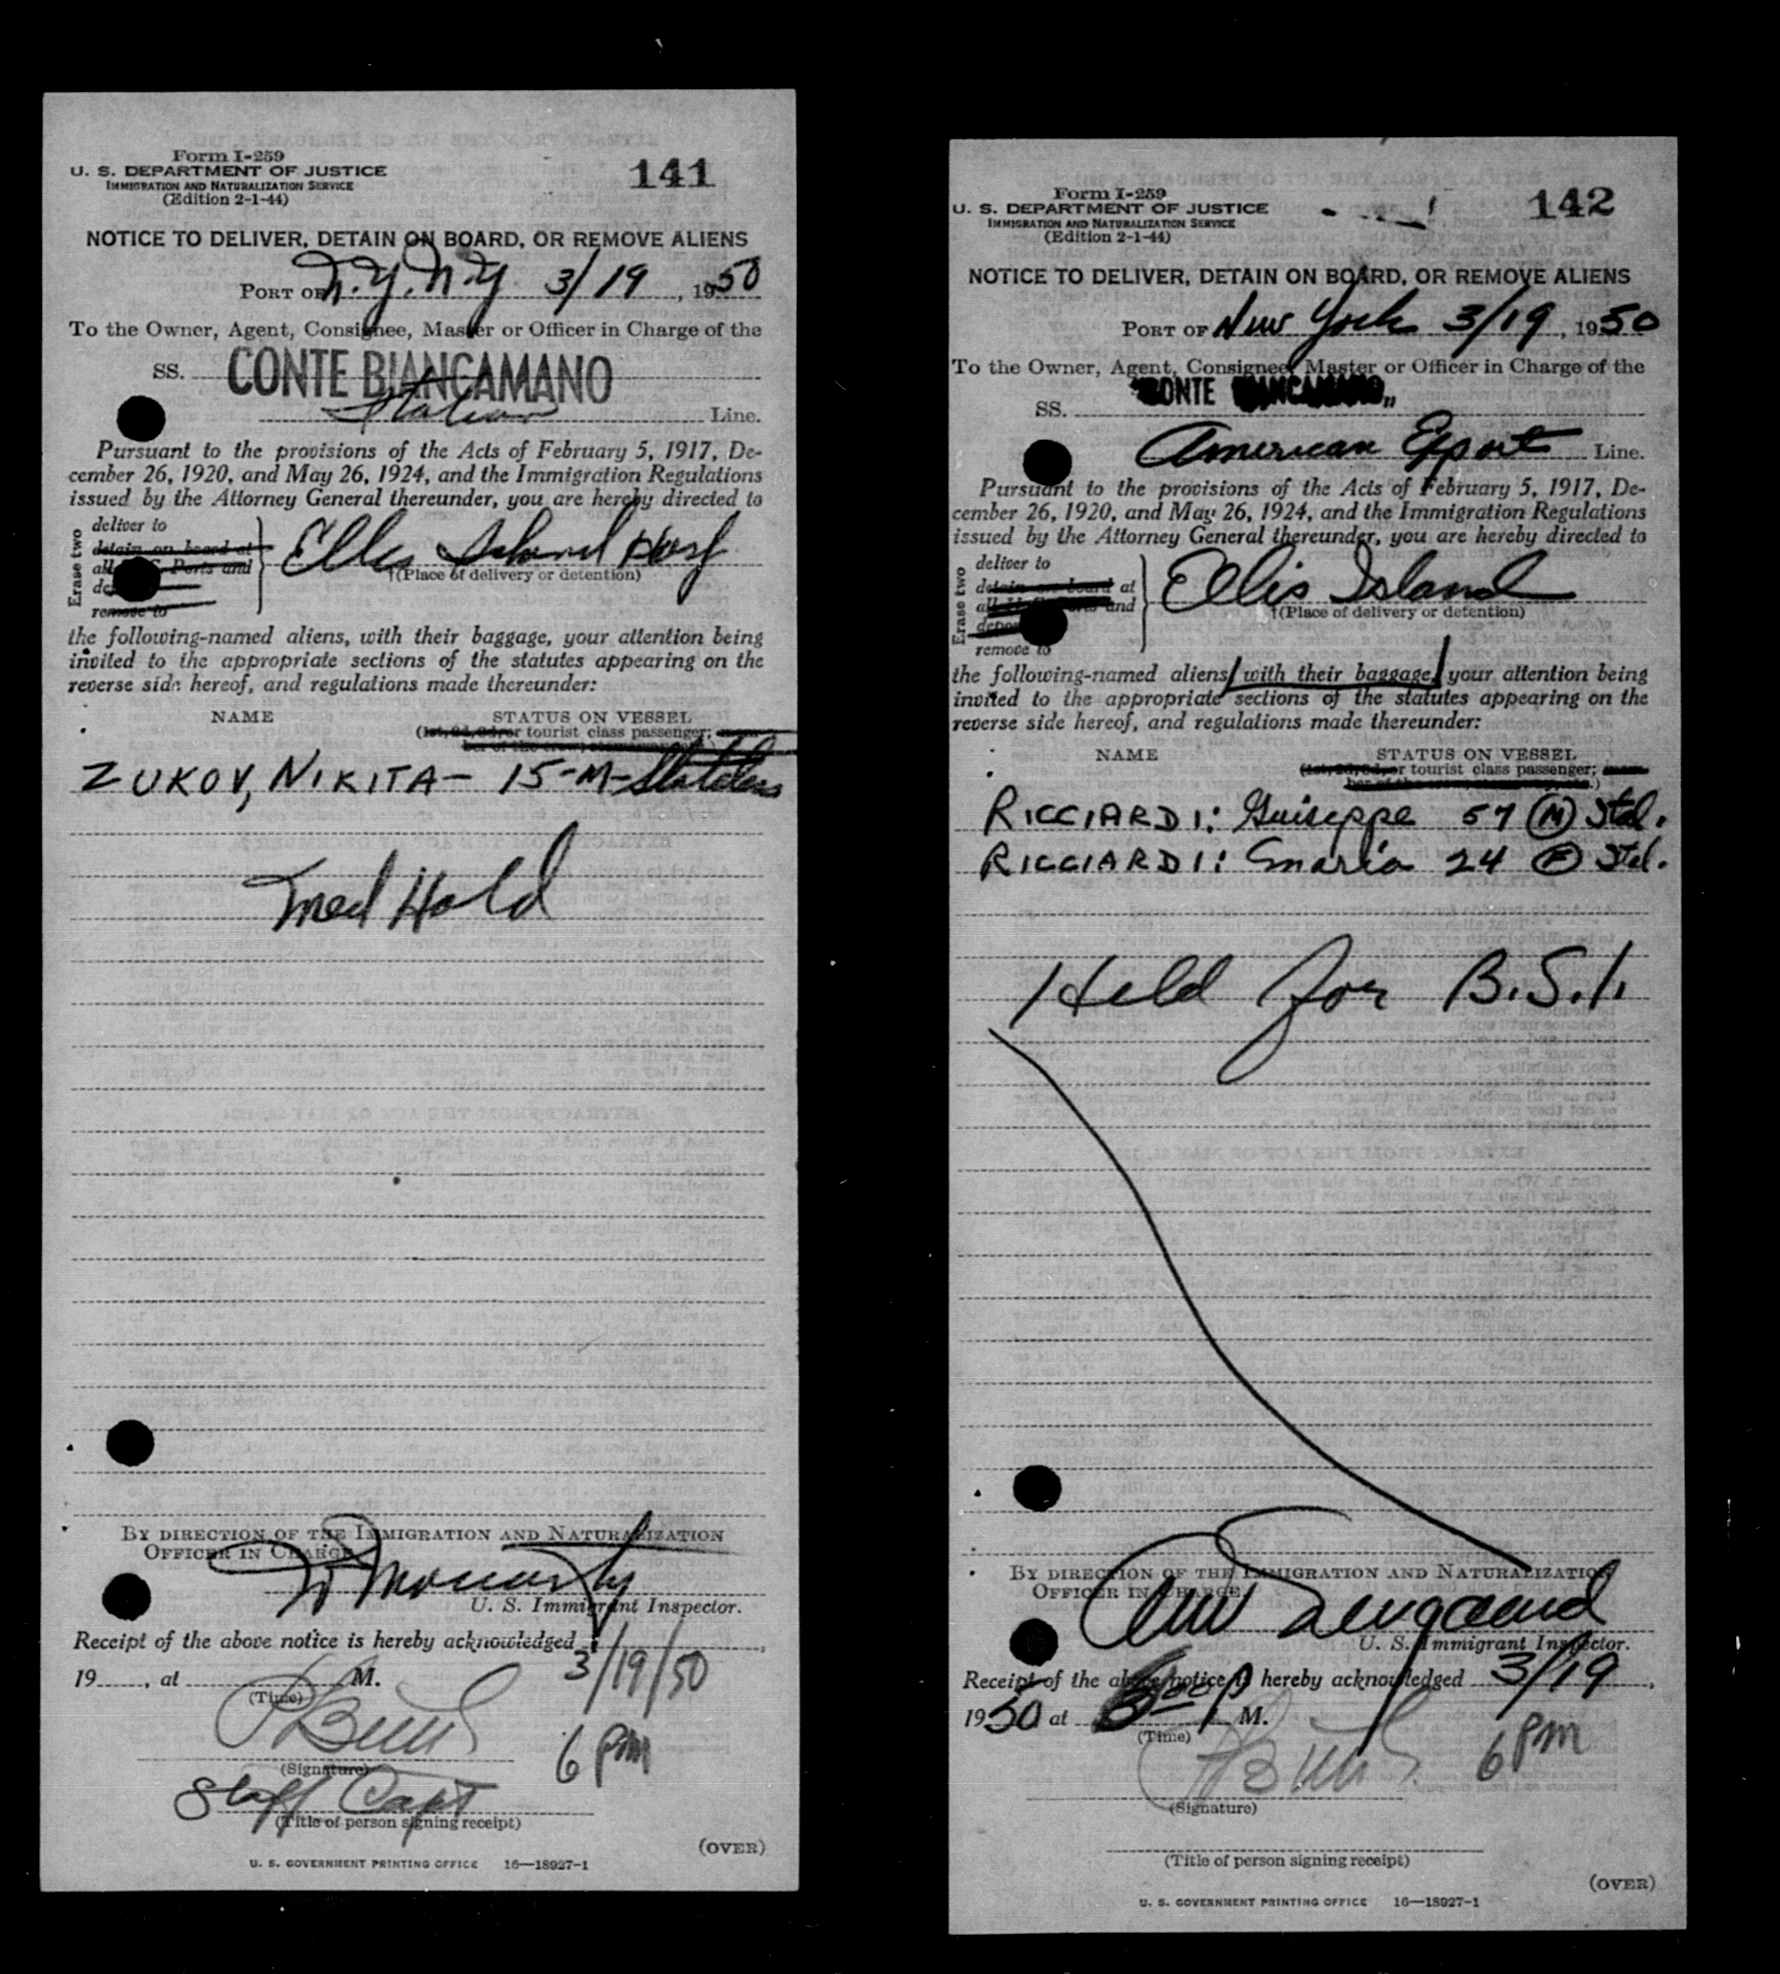 Form I-259
U. S. DEPARTMENT OF JUSTICE
IMMIGRATION AND NATURALIZATION SERVICE
(Edition 2-1-44)
141
NOTICE TO DELIVER, DETAIN ON BOARD, OR REMOVE ALIENS
PORT OF N.Y. N.Y 3/19, 1950
To the Owner, Agent, Consignee, Master or Officer in Charge of the
SS. CONTE BIANCAMANO
Italian Line.
Pursuant to the provisions of the Acts of February 5, 1917, De-
cember 26, 1920, and May 26, 1924, and the Immigration Regulations
issued by the Attorney General thereunder, you are hereby directed to
Erase two
deliver to
detain on board at
all U. S. Ports and
remove to
Ellis Island Hosp
†(Place of delivery or detention)
the following-named aliens, with their baggage, your attention being
invited to the appropriate sections of the statutes appearing on the
reverse side hereof, and regulations made thereunder:
NAME STATUS ON VESSEL
(1st, 2d, 3d, or tourist class passenger; mem-
ber of the crew;
ZUKOV, NIKITA - 15-M- Stateless
Med Hold
BY DIRECTION OF THE IMMIGRATION AND NATURALIZATION
OFFICER IN CHARGE
U. S. Immigrant Inspector.
Receipt of the above notice is hereby acknowledged
3/19/50
19......, at M.
(Time)
6 PM
(Signature)
Staff Capt
(Title of person signing receipt)
(OVER)
U. S. GOVERNMENT PRINTING OFFICE 16—18927-1
Form I-259
U. S. DEPARTMENT OF JUSTICE
IMMIGRATION AND NATURALIZATION SERVICE
(Edition 2-1-44)
142
NOTICE TO DELIVER, DETAIN ON BOARD, OR REMOVE ALIENS
PORT OF New York 3/19, 1950
To the Owner, Agent, Consignee, Master or Officer in Charge of the
SS. "CONTE BIANCAMANO"
American Export Line.
Pursuant to the provisions of the Acts of February 5, 1917, De-
cember 26, 1920, and May 26, 1924, and the Immigration Regulations
issued by the Attorney General thereunder, you are hereby directed to
Erase two
deliver to
detain on board at
all U. S. Ports and
remove to
Ellis Island
†(Place of delivery or detention)
the following-named aliens, with their baggage, your attention being
invited to the appropriate sections of the statutes appearing on the
reverse side hereof, and regulations made thereunder:
NAME STATUS ON VESSEL
(1st, 2d, 3d, or tourist class passenger; mem-
ber of the
RICCIARDI: Guiseppe 57 (M) Ital.
RICCIARDI: Maria 24 (F) Ital.
Held for B.S.I.
BY DIRECTION OF THE IMMIGRATION AND NATURALIZATION
OFFICER IN CHARGE
U. S. Immigrant Inspector.
Receipt of the above notice is hereby acknowledged 3/19,
1950 at 6:00 P M.
(Time)
6 PM
(Signature)
(Title of person signing receipt)
(OVER)
U. S. GOVERNMENT PRINTING OFFICE 16—18927-1